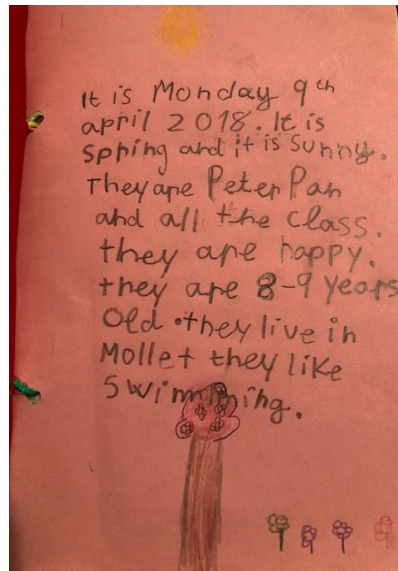 It is Monday 9th
april 2018. It is
spring and it is sunny.
They are Peter Pan
and all the class.
they are happy.
they are 8-9 years
old. they live in
Mollet they like
swimming.